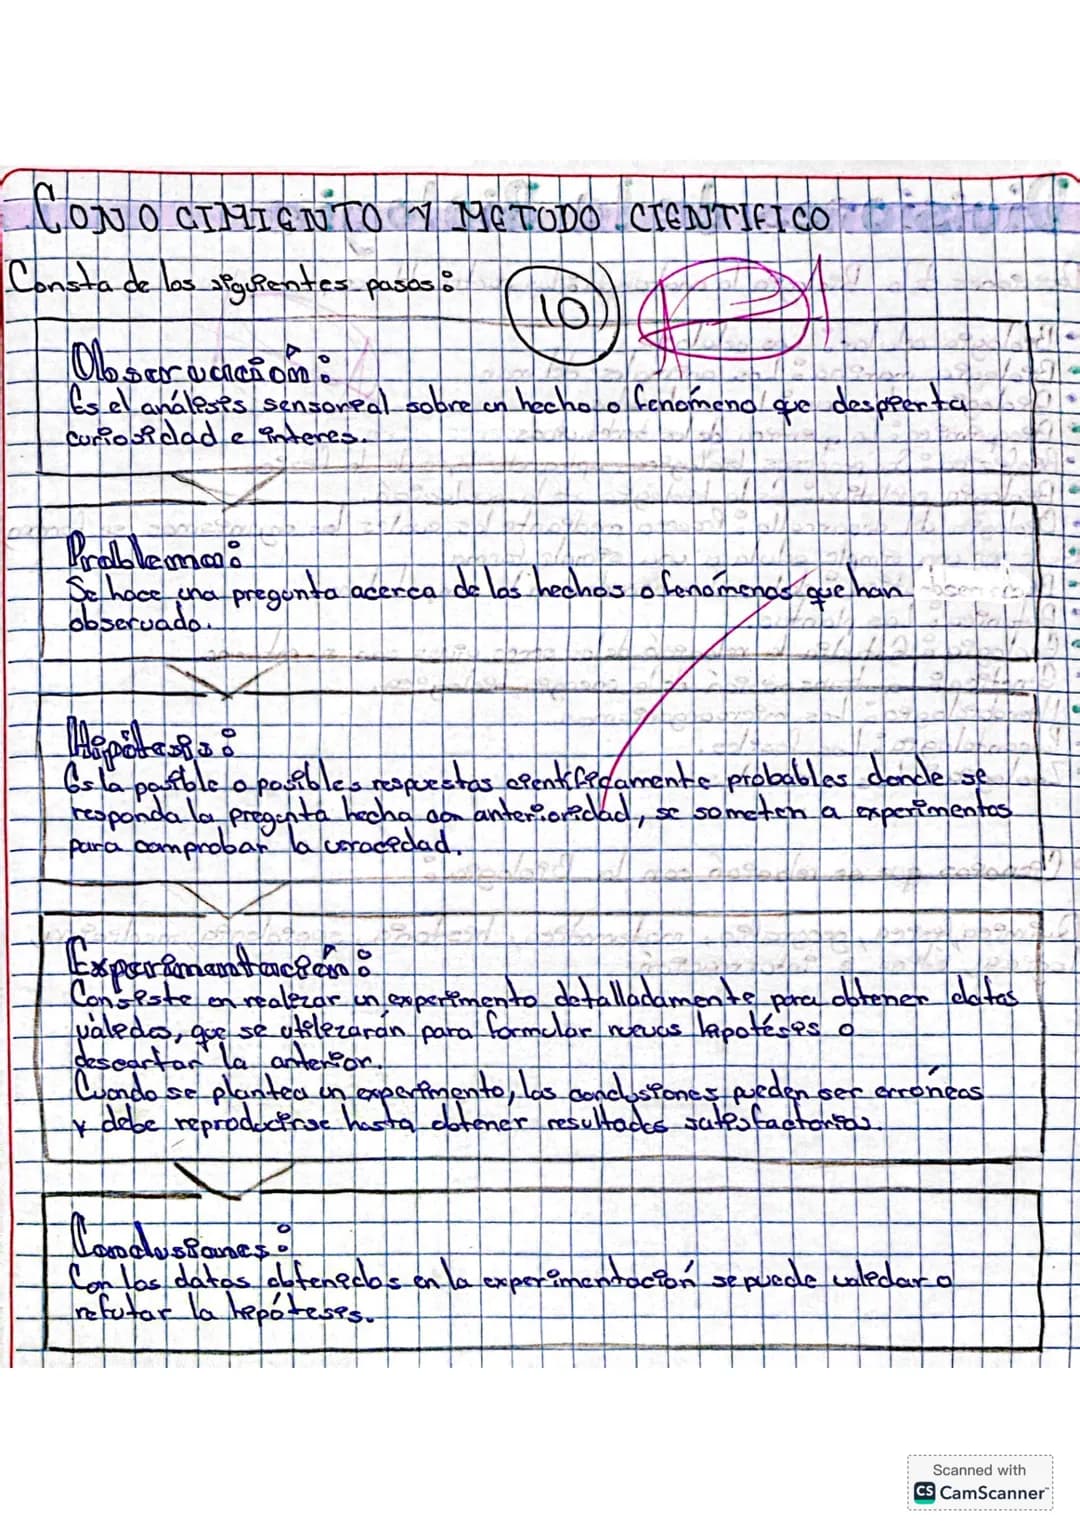 CONOCIMIENTO Y METODO CIENTIFICO
Consta de los siguientes pasos:
10
Observación:
Es el análisis sensorial sobre un hecho o fenómeno que despierta
curiosidad e interes.
Problema:
Se hace una pregunta acerca de los hechos o fenómenos que han
observado.
Hipótesis:
Es la posible o posibles respuestas cientificamente probables donde se
responda la pregunta hecha con anterioridad, se someten a experimentos
para comprobar la veracidad.
Experimentación:
Consiste en realizar un experimento detalladamente para obtener datos
válidos, que se utilizarán para formular nuevas hipotésis o
descartar la anterior.
Cuando se plantea un experimento, las conclusiones pueden ser erróneas
y debe reproducirse hasta obtener resultados satisfactorios.
Conclusiones:
Con los datos obtenidos en la experimentación se puede validar o
refutar la hipótesis.
Scanned with
CS CamScanner